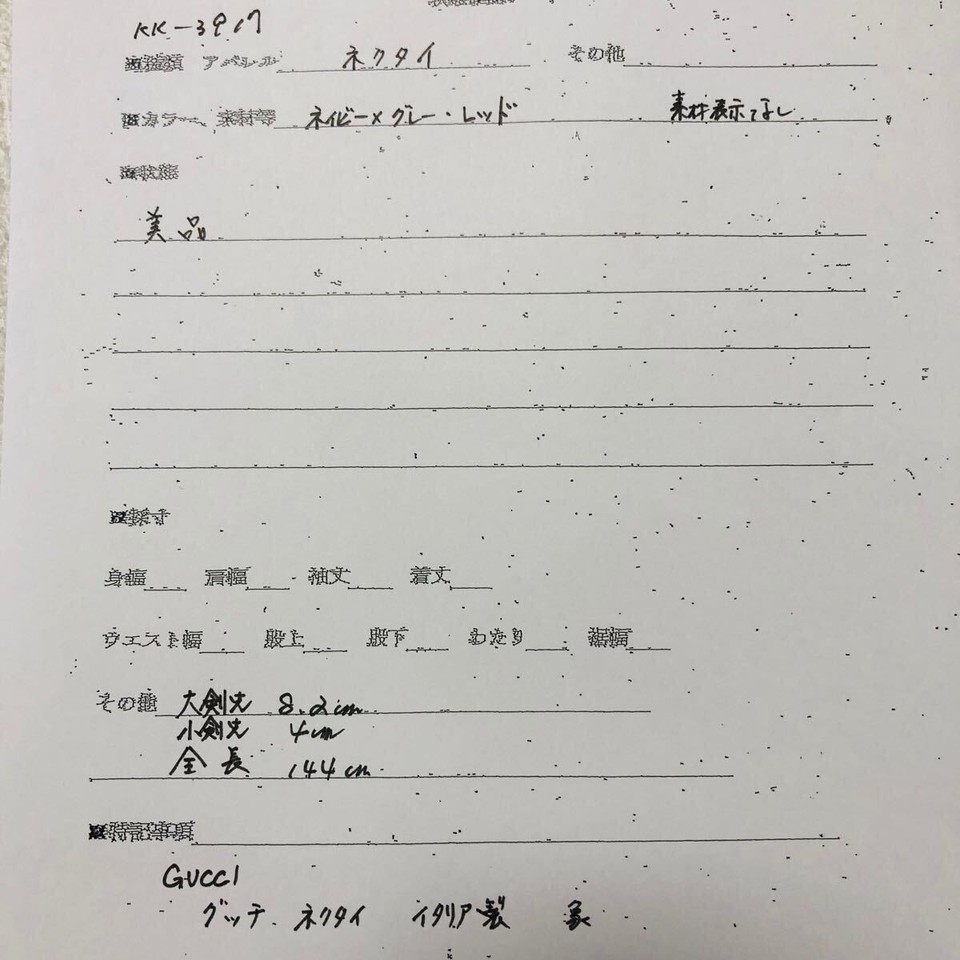 KK-3917
■種類 アパレル ネクタイ その他
■カラー、素材等 ネイビー×グレー・レッド 素材表示なし
■状態
美品
■採寸
身幅 肩幅 袖丈 着丈
ウエスト幅 股上 股下 わたり 裾幅
その他 大剣先 8.2cm
小剣先 4cm
全長 144cm
■特記事項
GUCCI
グッチ ネクタイ イタリア製 象